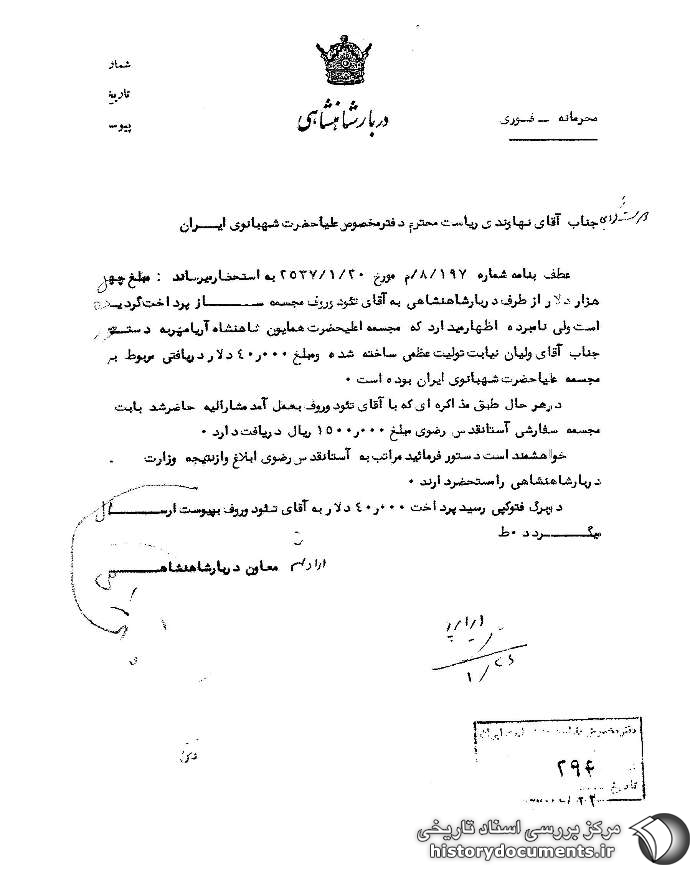 شماره
تاریخ
پیوست
دربار شاهنشاهی
محرمانه ــ فوری
جناب آقای نهاوندی ریاست محترم دفتر مخصوص علیاحضرت شهبانوی ایــران
عطف بنامه شماره ۸/۱۹۷/م مورخ ۲۵۳۷/۱/۲۰ به استحضار میرساند : مبلغ چهل
هزار دلار از طرف دربار شاهنشاهی به آقای تئودوروف مجسمه ســـاز پرداخت گردیـده
است ولی نامبرده اظهار میدارد که مجسمه اعلیحضرت همایون شاهنشاه آریامهر به دستـور
جناب آقای ولیان نیابت تولیت عظمی ساخته شده ومبلغ ۴۰٫۰۰۰ دلار دریافتی مربوط بـ
مجسمه علیاحضرت شهبانوی ایران بوده است ۰
در هر حال طبق مذاکره ای که با آقای تئودوروف بعمل آمد مشارالیه حاضر شد بابت
مجسمه سفارشی آستانقدس رضوی مبلغ ۱۵۰۰٫۰۰۰ ریال دریافت دارد ۰
خواهشمند است دستور فرمائید مراتب به آستانقدس رضوی ابلاغ واز نتیجه وزارت
دربار شاهنشاهی را مستحضر دارند ۰
دوبرگ فتوکپی رسید پرداخت ۴۰٫۰۰۰ دلار به آقای تئودوروف بپیوست ارســـال
میگـــردد ۰ط
معاون دربار شاهنشاهـــی
۱/۲۶
دفتر مخصوص علیاحضرت شهبانوی ایران
۲۹۴
تاریخ
مرکز بررسی اسناد تاریخی
historydocuments.ir